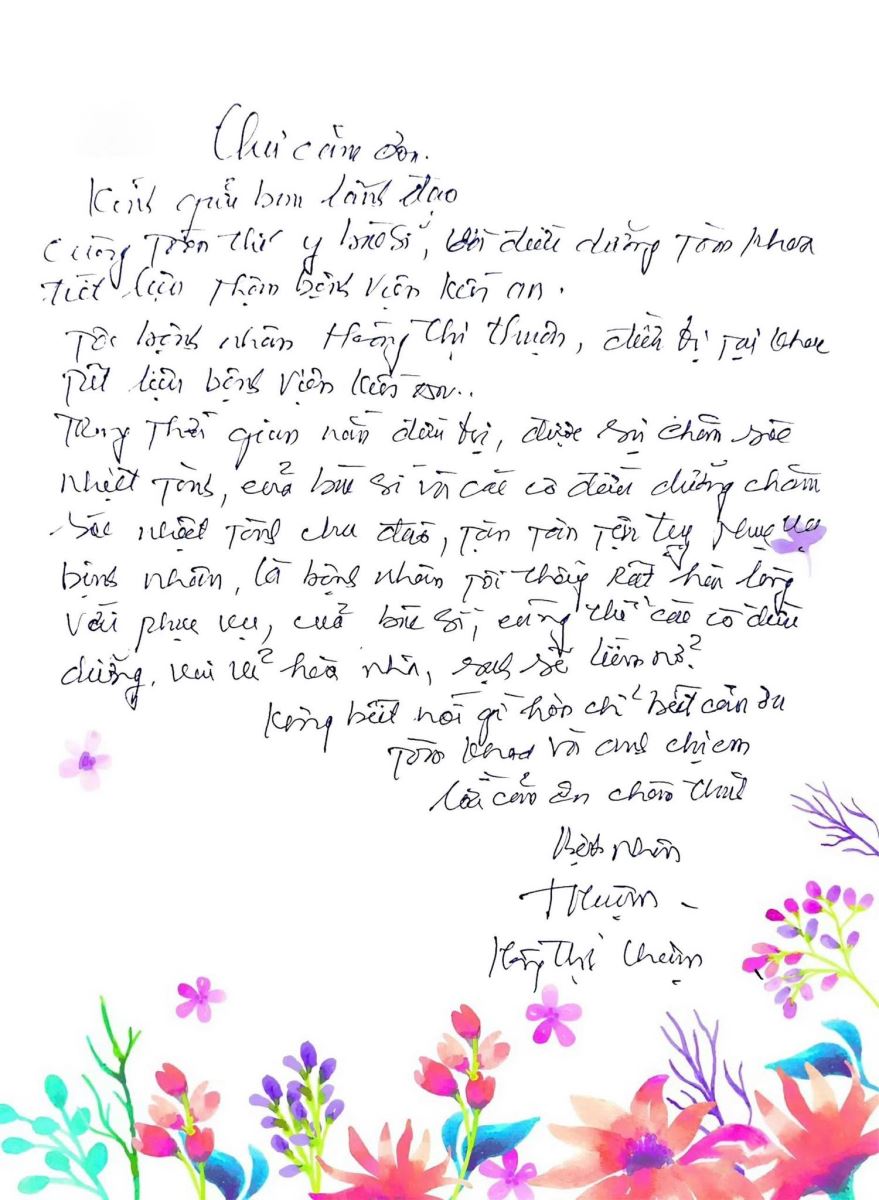 Thư cảm ơn.
Kính gửi ban lãnh đạo
Cùng toàn thể y bác sĩ, điều dưỡng toàn khoa
tiết liệu thận bệnh viện kiến an.
Tôi bệnh nhân Hoàng Thị Thuận, điều trị tại khoa
tiết liệu bệnh viện kiến an..
Trong thời gian nằm điều trị, được sự chăm sóc
nhiệt tình, của bác sĩ và các cô điều dưỡng chăm
sóc nhiệt tình chu đáo, tận tụy phục vụ
bệnh nhân, là bệnh nhân tôi thấy rất hài lòng
với phục vụ, của bác sĩ, cũng thể các cô điều
dưỡng, vui vẻ hòa nhã, sạch sẽ
Không biết nói gì hơn chỉ biết cảm ơn
toàn khoa và anh chị em
lời cảm ơn chân thật
Bệnh nhân
Thuận
Hoàng Thị Thuận